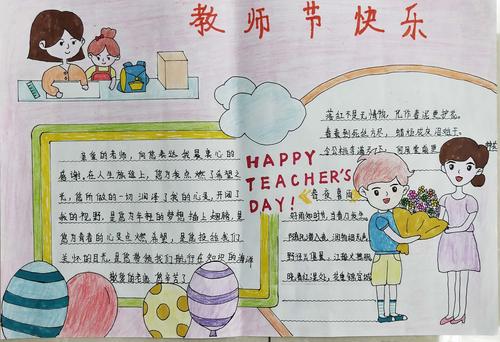 教师节快乐
亲爱的老师，向您表达我最衷心的
感谢，在人生旅途上，您为我点燃了希望之
光，您所做的一切润泽了我的心灵，开阔了
我的视野，是您为年轻的梦想插上翅膀，是
您为青春的心灵点燃希望，是您拉给我们
关怀的目光，是您带领我们航行在知识的海洋
敬爱的老师，您辛苦了
HAPPY
TEACHER'S
DAY!
落红不是无情物，化作春泥更护花。
春蚕到死丝方尽，蜡炬成灰泪始干。
令公桃李满天下，何用堂前更
春夜喜雨
好雨知时节，当春乃发生。
随风潜入夜，润物细无声。
野径云俱黑，江船火独明。
晓看红湿处，花重锦官城。